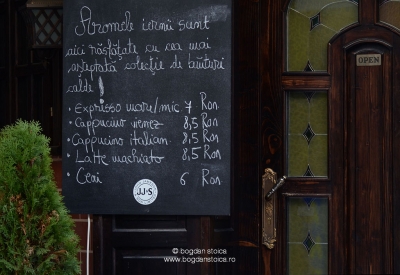 Aromele iernii sunt
aici răsfățate cu cea mai
așteptată colecție de băuturi
calde!
• Expresso mare/mic 7 Ron
• Cappucino vienez 8,5 Ron
• Cappucino italian 8,5 Ron
• Latte machiato 8,5 Ron
• Ceai 6 Ron
JJ'S
OPEN
© bogdan stoica
www.bogdanstoica.ro